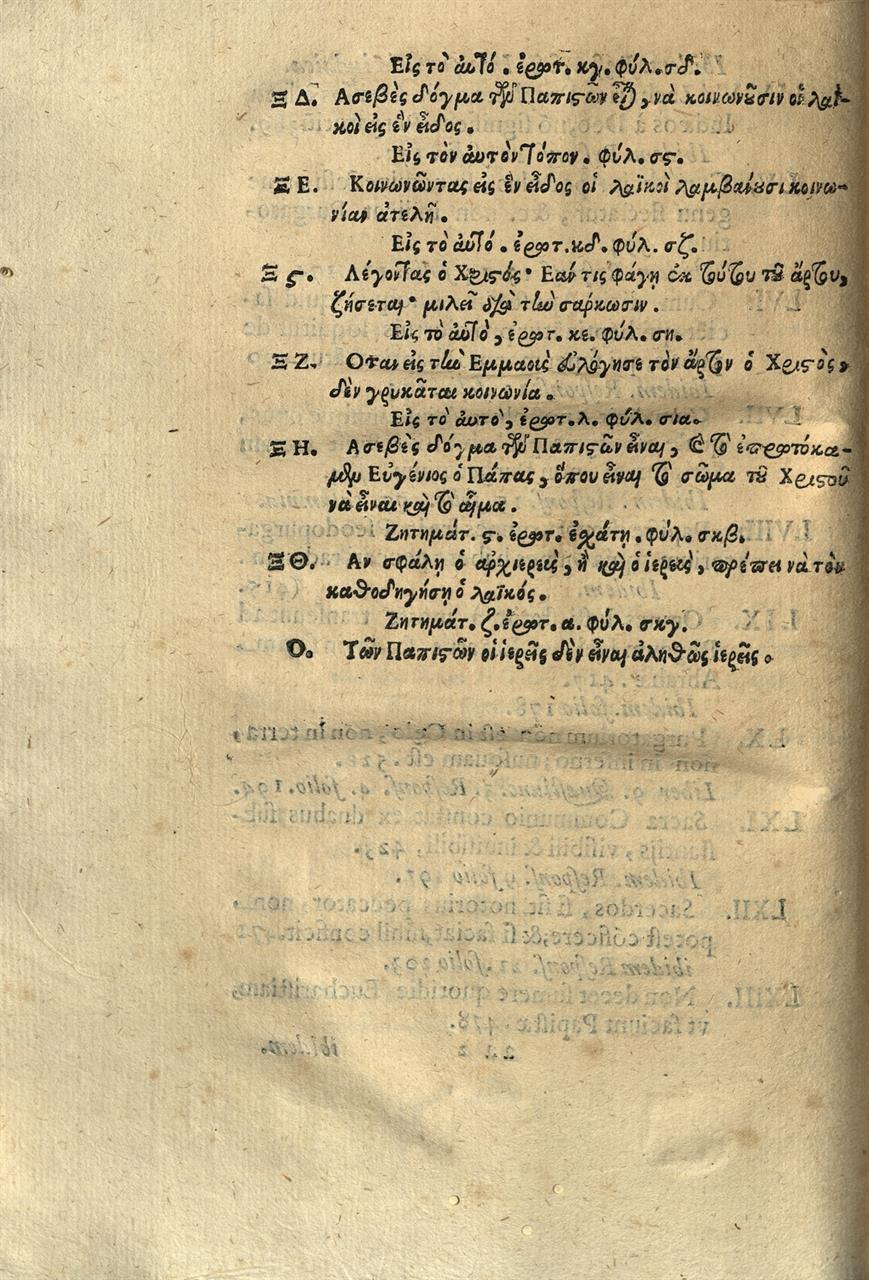 Εἰς τὸ ἀυτό. ἐρωτ. κγ. φύλ. σδ.
ΞΔ. Ασεβὲς δόγμα τῶν Παπιστῶν εἶναι, νὰ κοινωνοῦσιν οἱ λαϊ-
κοὶ εἰς ἓν εἶδος.
Εἰς τὸν ἀυτὸν τόπον. φύλ. σς.
ΞΕ. Κοινωνῶντας εἰς ἓν εἶδος οἱ λαϊκοὶ λαμβαίνουσι κοινω-
νίαν ἀτελῆ.
Εἰς τὸ ἀυτό. ἐρωτ. κδ. φύλ. σζ.
Ξς. Λέγοντας ὁ Χριστός· Εαν τις φάγῃ ἐκ τούτου τοῦ ἄρτου,
ζήσεται· μιλεῖ διὰ τὴν σάρκωσιν.
Εἰς τὸ ἀυτὸ, ἐρωτ. κε. φύλ. ση.
ΞΖ. Οταν εἰς τὴν Εμμαοὺς ἐυλόγησε τὸν ἄρτον ὁ Χριστὸς,
δὲν γρυκᾶται κοινωνία.
Εἰς τὸ ἀυτὸ, ἐρωτ. λ. φύλ. σια.
ΞΗ. Ασεβὲς δόγμα τῶν Παπιστῶν εἶναι, καὶ τὸ ἐπρωτόκα-
μεν Ευγένιος ὁ Πάπας, ὅπου εἶναι τὸ σῶμα τοῦ Χριστοῦ
νὰ εἶναι καὶ τὸ αἷμα.
Ζητημάτ. ς. ἐρωτ. ἐσχάτη. φύλ. σκβ.
ΞΘ. Αν σφάλῃ ὁ αρχιερεὺς, ἢ καὶ ὁ ἱερεὺς, πρέπει νὰ τὸν
καθοδηγήσῃ ὁ λαϊκός.
Ζητημάτ. ζ. ἐρωτ. α. φύλ. σκγ.
Ο. Τῶν Παπιστῶν οἱ ἱερεῖς δὲν εἶναι ἀληθῶς ἱερεῖς.